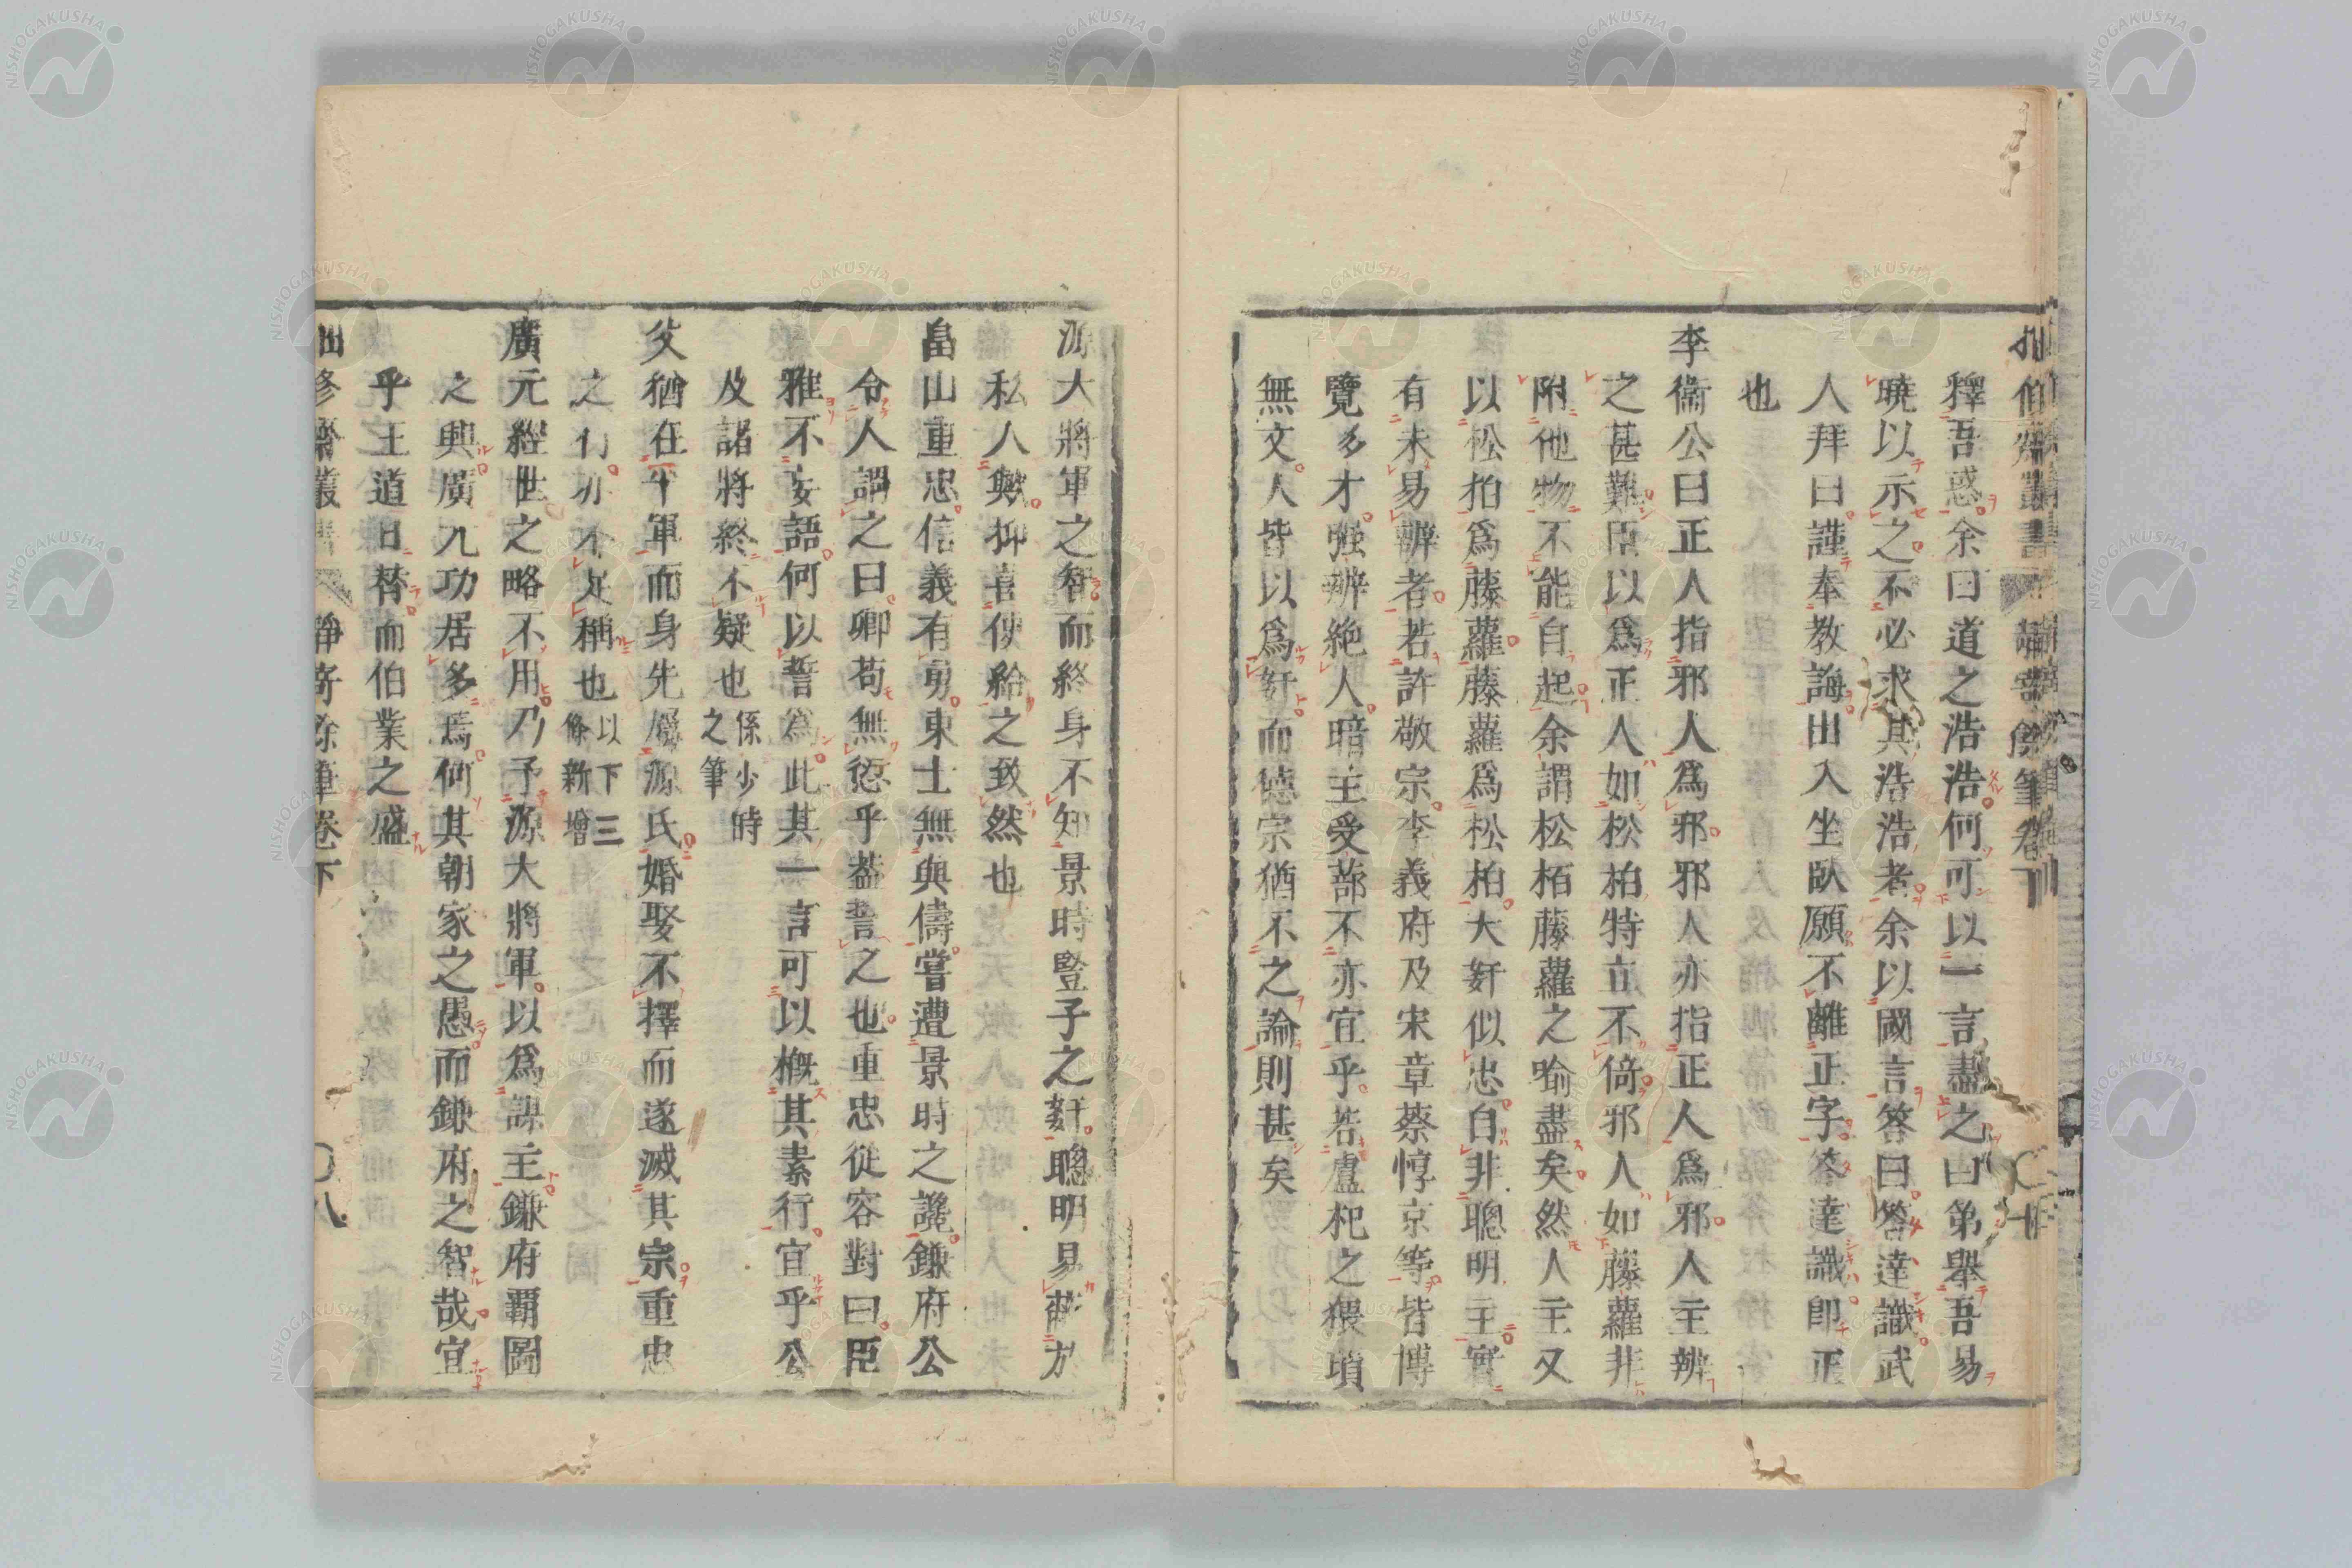 釋吾惑余曰道之浩浩何可以一言盡之曰第舉吾易
曉以示之不必求其浩浩者余以國言答曰答達識武
人拜曰謹奉教誨出入坐臥願不離正字答達識即正
也
李衞公曰正人指邪人爲邪邪人亦指正人爲邪人主辨
之甚難臣以爲正人如松柏特立不倚邪人如藤蘿非
附他物不能自起余謂松栢藤蘿之喻盡矣然人主又
以松柏爲藤蘿藤蘿爲松柏大姧似忠自非聰明主實
有未易辨者若許敬宗李義府及宋章蔡惇京等皆博
覽多才强辨絶人暗主受蔀不亦宜乎若盧杞之猥瑣
無文人皆以爲姧而德宗猶不之論則甚矣
源大將軍之智而終身不知景時豎子之姧聰明易蔽方
私人歟抑喜便給之致然也
畠山重忠信義有勇東士無與儔嘗遭景時之讒鎌府公
令人謂之曰卿苟無愆乎葢誓之也重忠從容對曰臣
雅不妄語何以誓爲此其一言可以槪其素行宜乎公
及諸將終不疑也係少時之筆
父猶在平軍而身先屬源氏婚娶不擇而遂滅其宗重忠
之行功不足稱也以下三條新增
廣元經世之略不用乃予源大將軍以爲謀主鎌府覇圖
之興廣元功居多焉何其朝家之愚而鎌府之智哉宜
乎王道日替而伯業之盛
修齋叢書 靜寄餘筆卷下 八
NISHOGAKUSHA